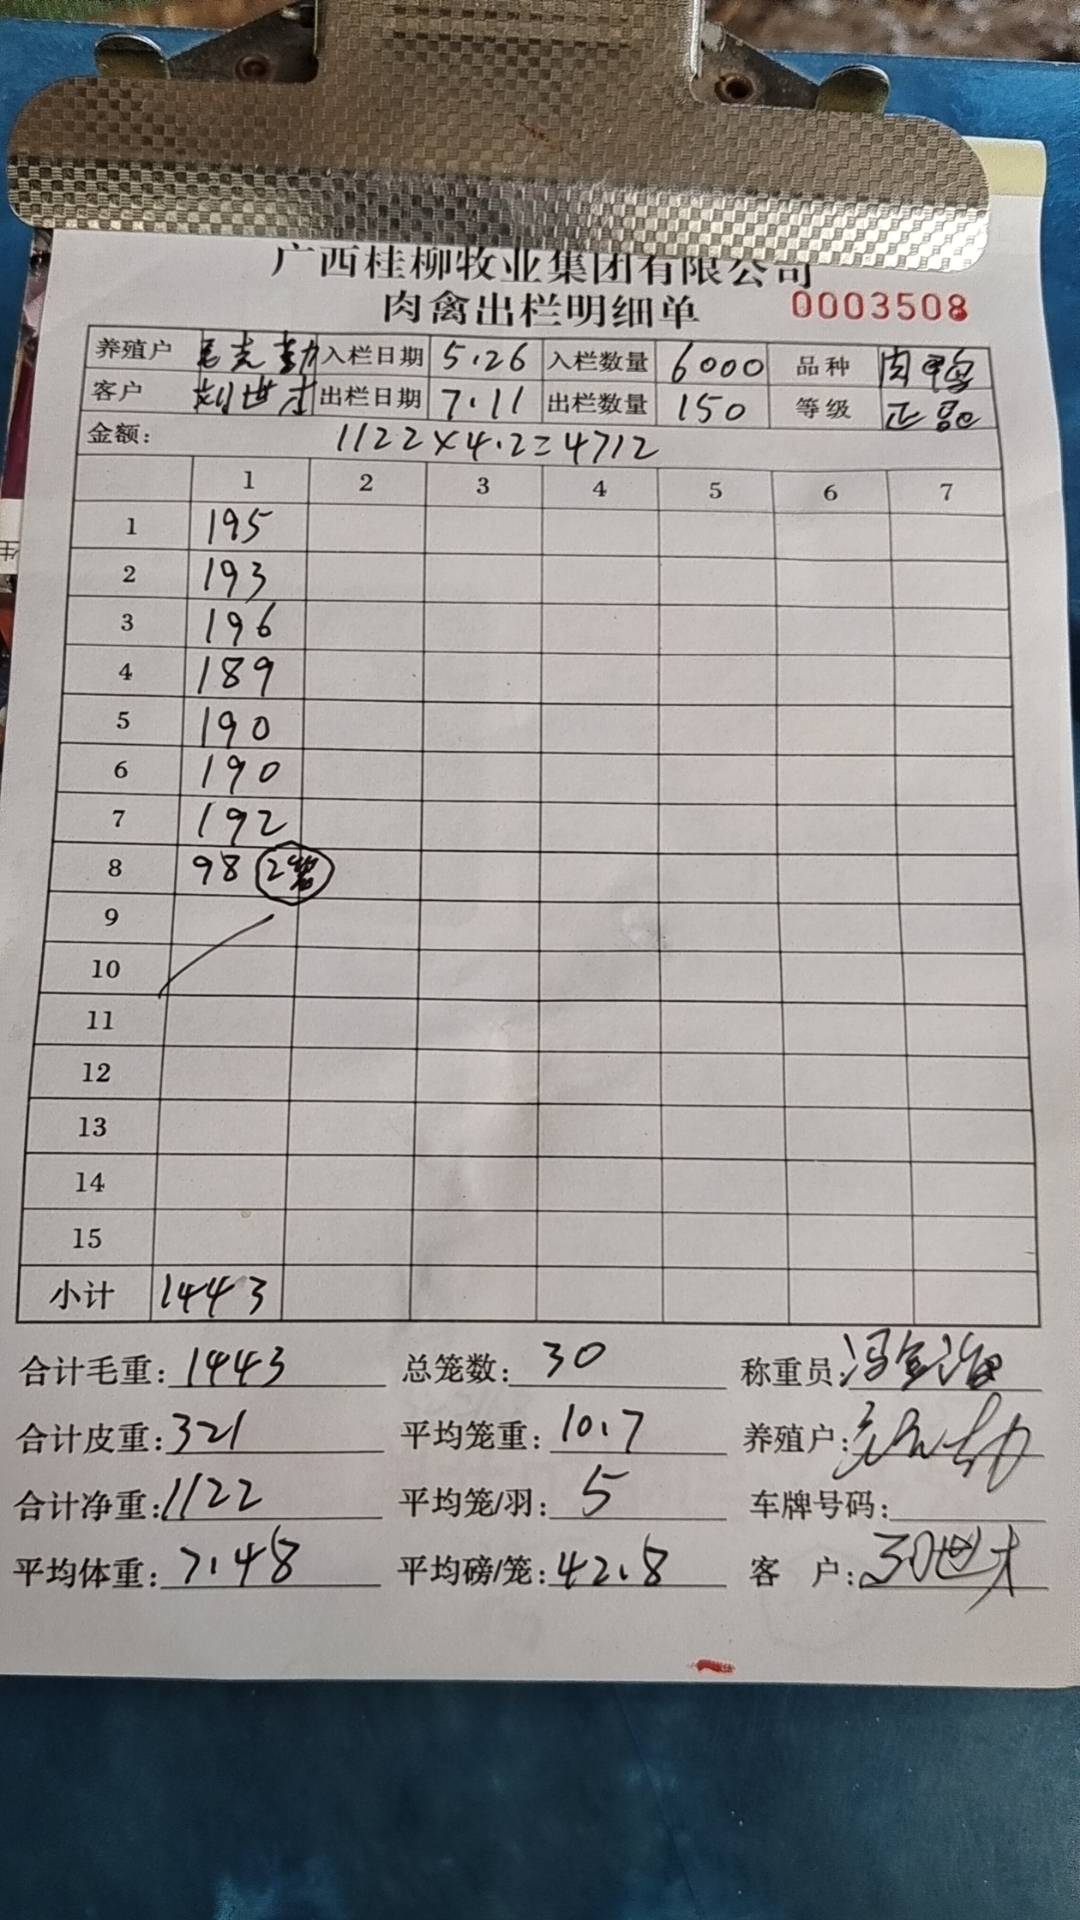 广西桂柳牧业集团有限公司
肉禽出栏明细单 0003508
养殖户 克勤 入栏日期 5.26 入栏数量 6000 品种 肉鸭
客户 刘世才 出栏日期 7.11 出栏数量 150 等级 正品
金额: 1122×4.2=4712
1 2 3 4 5 6 7
1 195
2 193
3 196
4 189
5 190
6 190
7 192
8 98 2笼
9
10
11
12
13
14
15
小计 1443
合计毛重: 1443 总笼数: 30 称重员:
合计皮重: 321 平均笼重: 10.7 养殖户:
合计净重: 1122 平均笼/羽: 5 车牌号码:
平均体重: 7.48 平均磅/笼: 42.8 客 户: 刘世才